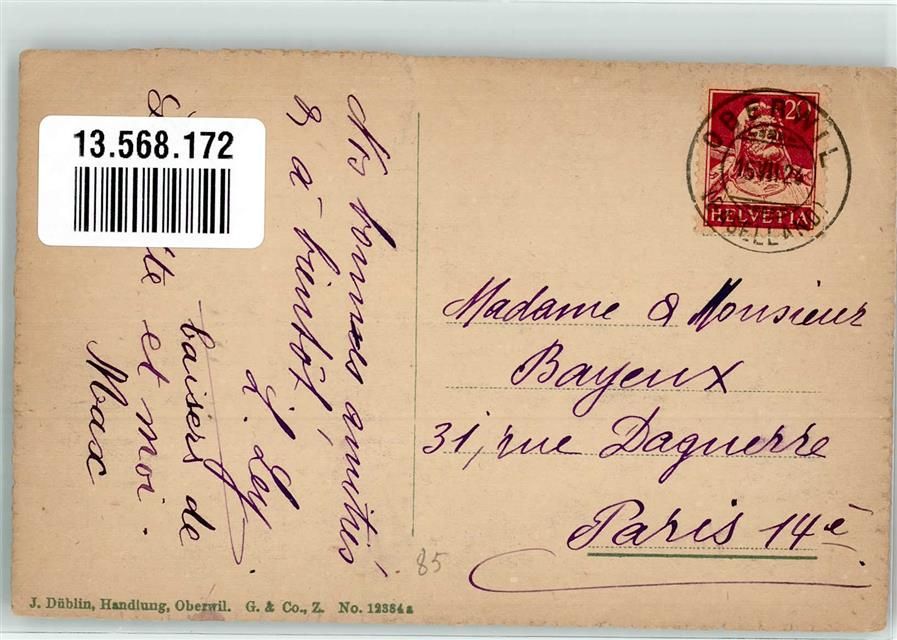 13.568.172
20
HELVETIA
OBERWIL
15.VII.24
(BASELLAND)
Nos bonnes amitiés
& à bientôt,
L. Ley.
baisers de
et moi.
Max
Madame & Monsieur
Bayeux
31, rue Daguerre
Paris 14è
85
J. Düblin, Handlung, Oberwil. G. & Co., Z. No. 12384a